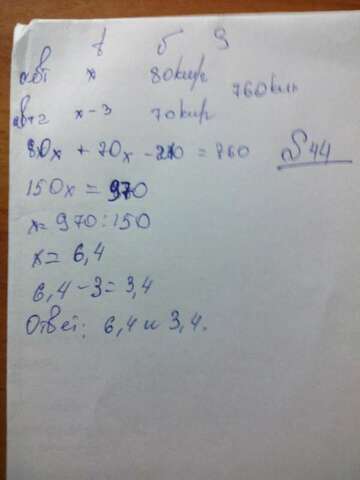 t v S
авт1 x 80км/ч 760км
авт2 x-3 70км/ч
80x + 70x - 210 = 760 №44
150x = 970
x = 970:150
x = 6,4
6,4 - 3 = 3,4
Ответ: 6,4 и 3,4.